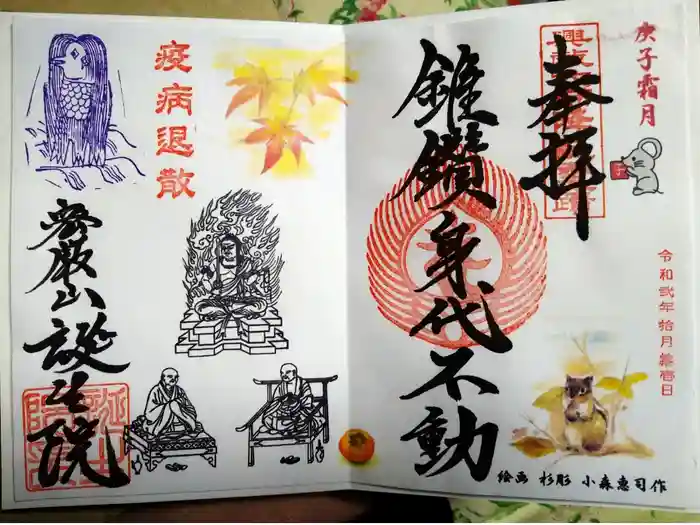 庚子霜月
奉拝
錐鑽身代不動
令和弐年 拾月
絵画 杉彫 小森惠司作
疫病退散
密厳山誕生院